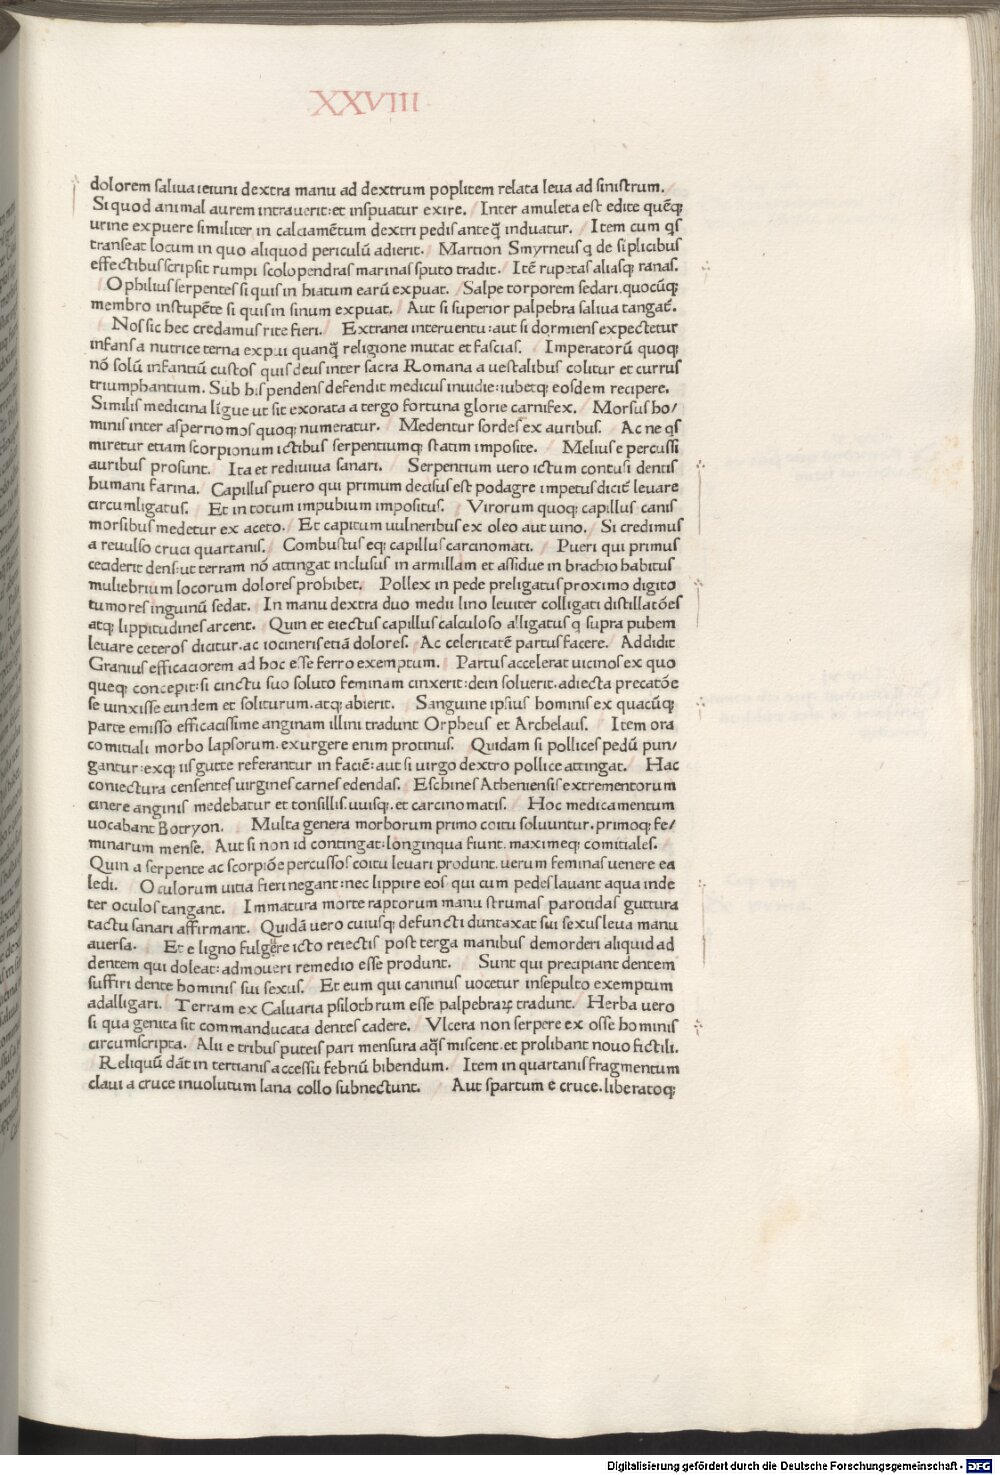 XXVIII
dolorem saliua ieiuni dextra manu ad dextrum poplitem relata leua ad sinistrum.
Si quod animal aurem intrauerit: et inspuatur exire. Inter amuleta est edite quēq;
urine expuere similiter in calciamētum dextri pedis anteq̄ induatur. Item cum qs
transeat locum in quo aliquod periculū adierit. Martion Smyrneus q de siplicibus
effectibus scripsit rumpi scolopendras marinas sputo tradit. Itē rupetas aliasq; ranas.
Ophilius serpentes si quis in hiatum earū expuat. Salpe torporem sedari. quocūq;
membro instupēte si quis in sinum expuat. Aut si superior palpebra saliua tangat̄.
Nos sic hec credamus rite fieri. Extranei interuentu: aut si dormiens expectetur
infans a nutrice terna expui quanq̄ religione mutat et fascias. Imperatorū quoq;
nō solū infantiū custos quis deus inter sacra Romana a uestalibus colitur et currus
triumphantium. Sub his pendens defendit medicus inuidie: iubetq; eosdem recipere.
Similis medicina līgue ut sit exorata a tergo fortuna glorie carnifex. Morsus ho/
minis inter asperriomos quoq; numeratur. Medentur sordes ex auribus. Ac ne qs
miretur etiam scorpionum ictibus serpentiumq; statim imposite. Melius e percussi
auribus prosunt. Ita et rediuiua sanari. Serpentium uero ictum contusi dentis
humani farina. Capillus puero qui primum decisus est podagre impetus dicit̄ leuare
circumligatus. Et in totum impubium impositus. Virorum quoq; capillus canis
morsibus medetur ex aceto. Et capitum uulneribus ex oleo aut uino. Si credimus
a reuulso cruci quartanis. Combustus eq; capillus carcinomati. Pueri qui primus
ceciderit dens: ut terram nō attingat inclusus in armillam et assidue in brachio habitus
muliebrium locorum dolores prohibet. Pollex in pede preligatus proximo digito
tumores inguinū sedat. In manu dextra duo medii lino leuiter colligati distillatōes
atq; lippitudines arcent. Quin et eiectus capillus calculoso alligatus q supra pubem
leuare ceteros dicitur. ac iocineris etiā dolores. Ac celeritatē partus facere. Addidit
Granius efficaciorem ad hoc esse ferro exemptum. Partus accelerat uicinos ex quo
queq; concepit: si cinctu suo soluto feminam cinxerit: dein soluerit. adiecta precatōe
se uinxisse eundem et soliturum. atq; abierit. Sanguine ipsius hominis ex quacūq;
parte emisso efficacissime anginam illini tradunt Orpheus et Archelaus. Item ora
comitiali morbo lapsorum. exurgere enim protinus. Quidam si pollices pedū pun/
gantur: exq; iis gutte referantur in faciē: aut si uirgo dextro pollice attingat. Hac
coniectura censentes uirgines carnes edendas. Eschines Atheniensis extrementorum
cinere anginis medebatur et tonsillis. uuisq;. et carcinomatis. Hoc medicamentum
uocabant Botryon. Multa genera morborum primo coitu soluuntur. primoq; fe/
minarum mense. Aut si non id contingat: longinqua fiunt. maximeq; comitiales.
Quin a serpente ac scorpiōe percussos coitu leuari produnt. uerum feminas uenere ea
ledi. Oculorum uitia fieri negant: nec lippire eos qui cum pedes lauant aqua inde
ter oculos tangant. Immatura morte raptorum manu strumas parotidas guttura
tactu sanari affirmant. Quidā uero cuiusq; defuncti duntaxat sui sexus leua manu
auersa. Et e ligno fulgere icto reiectis post terga manibus demorderi aliquid ad
dentem qui doleat: admoueri remedio esse produnt. Sunt qui precipiant dentem
suffiri dente hominis sui sexus. Et eum qui caninus uocetur insepulto exemptum
adalligari. Terram ex Caluaria psilothrum esse palpebraꝝ tradunt. Herba uero
si qua genita sit commanducata dentes cadere. Vlcera non serpere ex osse hominis
circumscripta. Alii e tribus puteis pari mensura aq̄s miscent. et prolibant nouo fictili.
Reliquū dāt in tertianis accessu febriū bibendum. Item in quartanis fragmentum
claui a cruce inuolutum lana collo subnectunt. Aut spartum e cruce. liberatoq;
Digitalisierung gefördert durch die Deutsche Forschungsgemeinschaft - DFG